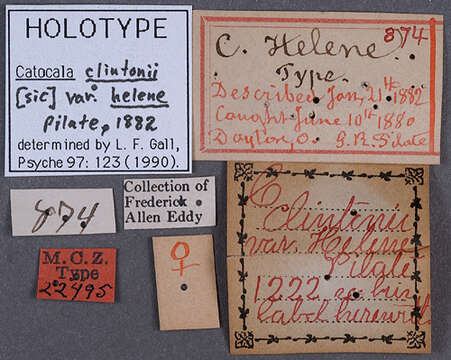 HOLOTYPE
Catocala clintonii
[sic] var. helene
Pilate, 1882
determined by L. F. Gall,
Psyche 97: 123 (1990).
874
C. Helene.
Type.
Described Jan, 21st 1882
Caught June 10th 1880
Dayton, O. G. R. Pilate
874
Collection of
Frederick
Allen Eddy
M.C.Z.
Type
22495
♀
Clintonii
var. Helene
Pilate
1222 as his
label herewith